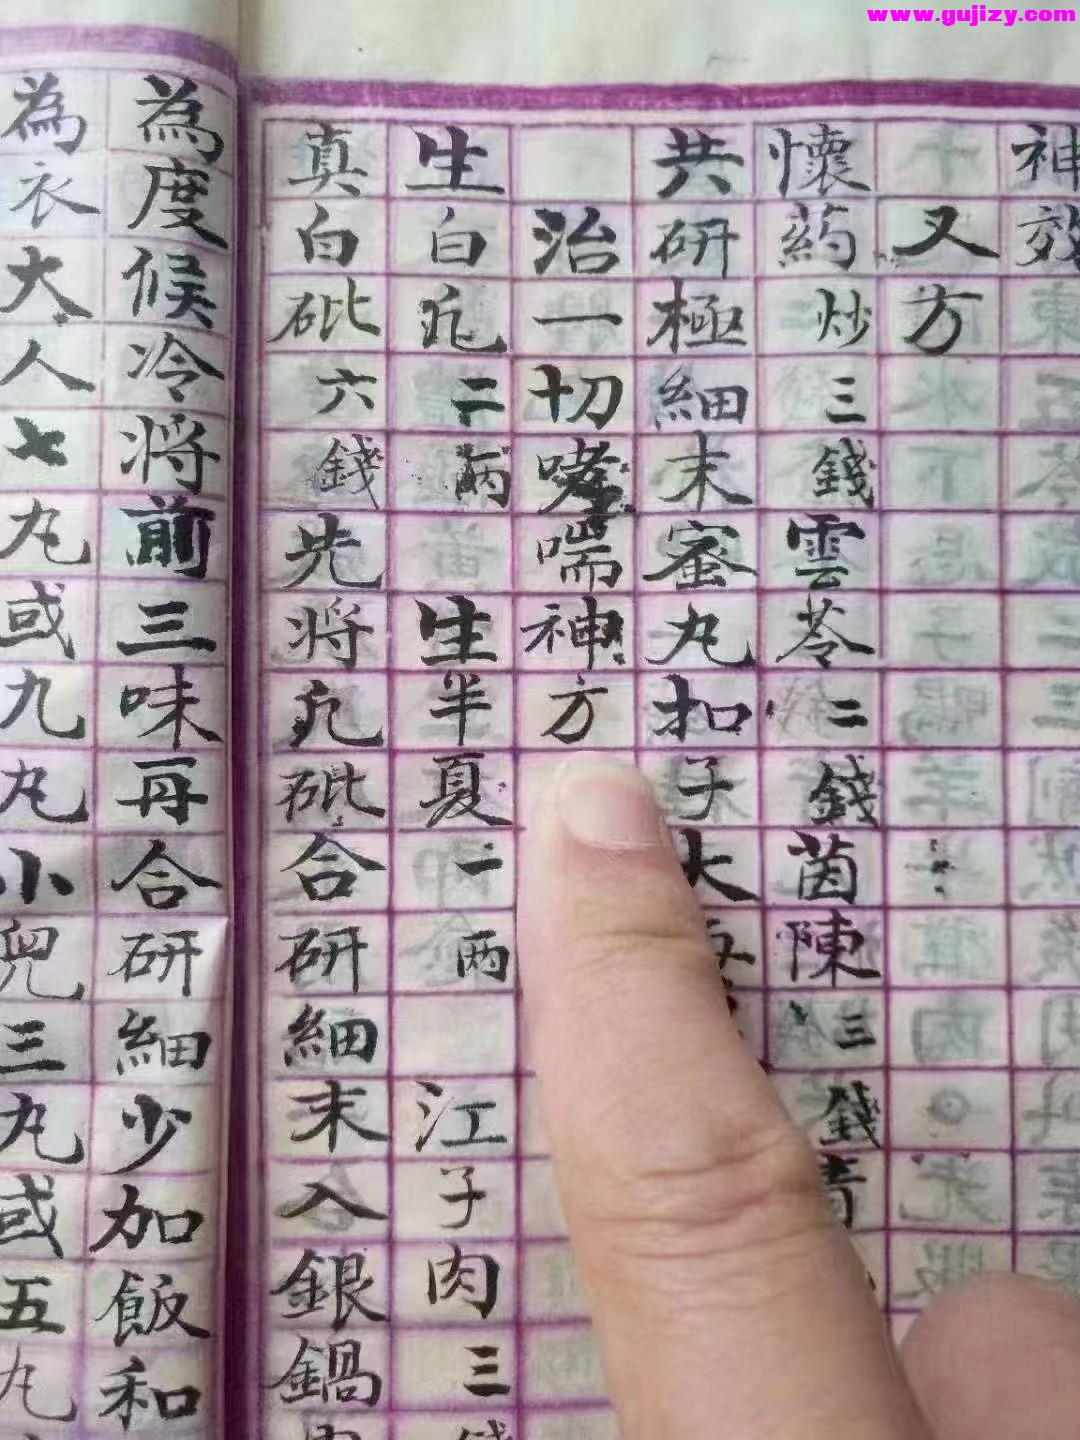 www.gujizy.com
神效
又方
懷药炒三錢雲苓二錢茵陳三錢青
共研極細末蜜丸扣子大
治一切哮喘神方
生白凢二两生半夏一两江子肉三錢
真白砒六錢先将凢砒合研細末入銀鍋内
為度候冷将前三味再合研細少加飯和
為衣大人七丸或九丸小兜三丸或五丸